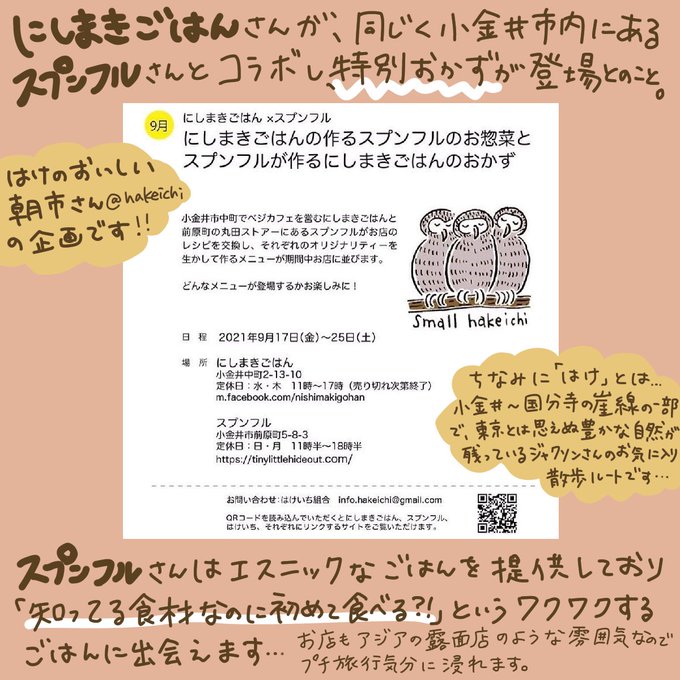 にしまきごはんさんが、同じく小金井市内にある
スプンフルさんとコラボし、特別おかずが登場とのこと。
はけのおいしい
朝市さん@hakeichi
の企画です!!
9月
にしまきごはん ×スプンフル
にしまきごはんの作るスプンフルのお惣菜と
スプンフルが作るにしまきごはんのおかず
小金井市中町でベジカフェを営むにしまきごはんと
前原町の丸田ストアーにあるスプンフルがお店の
レシピを交換し、それぞれのオリジナリティーを
生かして作るメニューが期間中お店に並びます。
どんなメニューが登場するかお楽しみに!
small hakeichi
日 程 2021年9月17日(金)〜25日(土)
場 所 にしまきごはん
小金井市中町2-13-10
定休日:水・木 11時〜17時(売り切れ次第終了)
m.facebook.com/nishimakigohan
スプンフル
小金井市前原町5-8-3
定休日:日・月 11時半〜18時半
https://tinylittlehideout.com/
お問い合わせ:はけいち組合 info.hakeichi@gmail.com
QRコードを読み込んでいただくとにしまきごはん、スプンフル、
はけいち、それぞれにリンクするサイトをご覧いただけます。
ちなみに「はけ」とは…
小金井〜国分寺の崖線の一部
で、東京とは思えぬ豊かな自然が
残っているジャクソンさんのお気に入り
散歩ルートです…
スプンフルさんはエスニックなごはんを提供しており
「知ってる食材なのに初めて食べる?!」というワクワクする
ごはんに出会えます…
お店もアジアの露面店のような雰囲気なので
プチ旅行気分に浸れます。